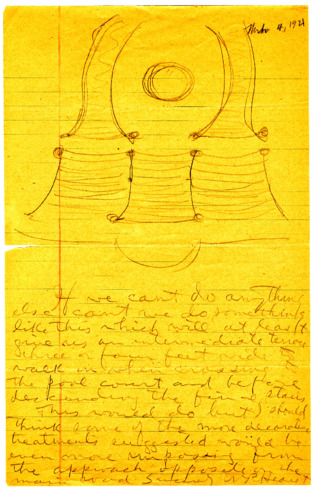 Nov 4, 1921
If we can't do anything
else can't we do something
like this which will at least
give us an intermediate terrace
three or four feet wide to
walk in when crossing
the pool court and before
descending the final stairs
This would do but I should
think some of the more decorative
treatments suggested would be
even more imposing from
the approach opposite the
main